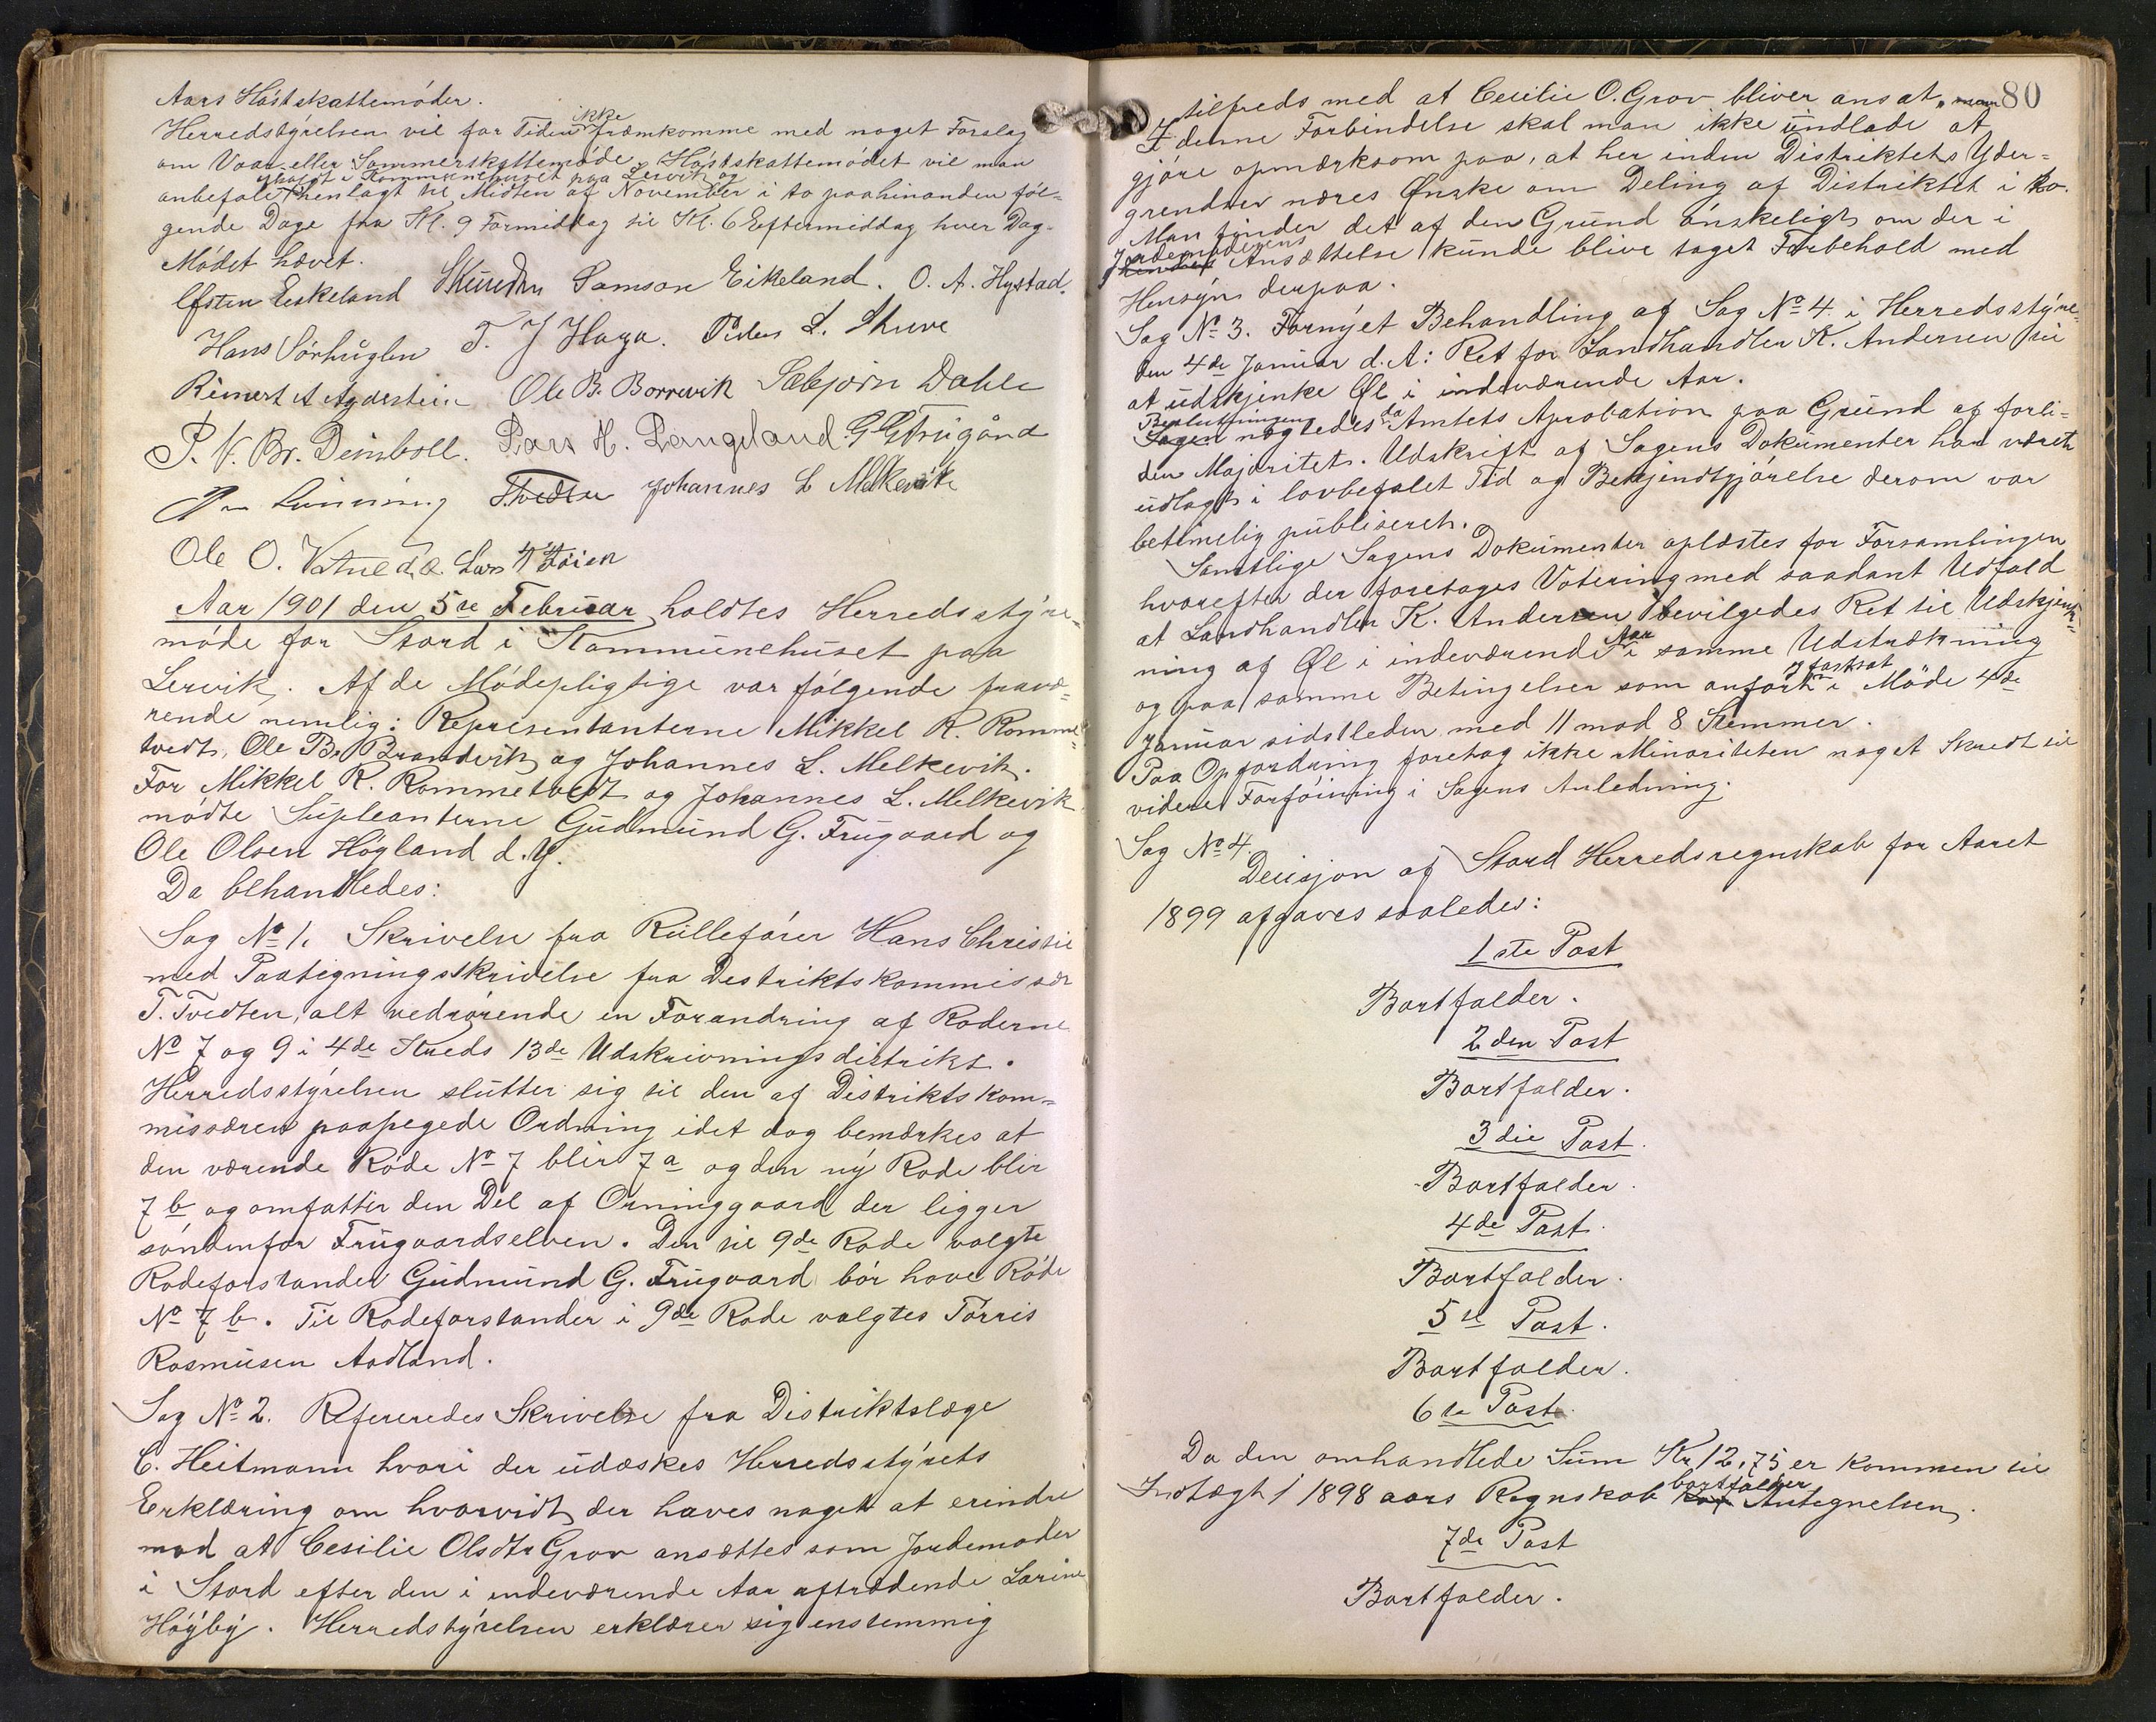 Aars Høstskattemøder.
Herredstyrelsen vil for Tiden ikke fræmkomme med noget Forslag
om Vaar eller Sommerskattemøde. Høstskattemødet vil man
anbefale afholdt i Kommunehuset paa Lervik og henlagt til Midten af November i to paahinanden føl-
gende Dage fra Kl. 9 Formiddag til Kl. 6 Eftermiddag hver Dag.
Mødet hævet.
Eskeland Samson Eikeland. O. A. Hystad.
Hans Sørhuglen T. J Haga. Peder L. Stuve
Reinert A Agdestein Ole B. Borrevik Sæbjørn Dahle
P. V. Br. Deinboll. Lars H. Langeland. G G Frugård
Lunning Tvedten Johannes L Melkevik
Ole O. Vatne d.æ. Lars Tøien
Aar 1901 den 5te Februar holdtes Herredsstyre-
møde for Stord i Kommunehuset paa
Lervik. Af de Mødepligtige var følgende fravæ-
rende nemlig: Repræsentanterne Mikkel R. Romme-
tvedt, Ole Br. Brandvik og Johannes L. Melkevik.
For Mikkel R. Rommetvedt og Johannes L. Melkevik
mødte Supleanterne Gudmund G. Frugaard og
Ole Olsen Høgland d. y.
Da behandledes:
Sag No 1. Skrivelse fra Rullefører Hans Christie
med Paategningsskrivelse fra Distriktskommissær
T. Tvedten, alt vedrørende en Forandring af Roderne
No 7 og 9 i 4de Streds 13de Udskrivningsdistrikt.
Herredsstyrelsen slutter sig til den af Distriktskom-
missæren paapegede Ordning idet dog bemærkes at
den værende Rode No 7 blir 7a og den ny Rode blir
7b og omfatter den Del af Orninggaard der ligger
søndenfor Frugaardselven. Den til 9de Rode valgte
Rodeforstander Gudmund G. Frugaard bør have Rode
No 7 b. Til Rodeforstander i 9de Rode valgtes Tørris
Rasmusen Aadland.
Sag No 2. Refereredes Skrivelse fra Distriktslæge
C. Heitmann hvori der udæskes Herredsstyrets
Erklæring om hvorvidt der haves noget at erindre
mod at Cesilie Olsdtr Grov ansættes som Jordemoder
i Stord efter den i indeværende Aar aftrædende Larine
Høyby. Herredstyrelsen erklærer sig enstemmig
80
tilfreds med at Cecilie O. Grov bliver ansat, men
I denne Forbindelse skal man ikke undlade at
gjøre opmærksom paa, at her inden Distriktets Yder-
grendser næres Ønske om Deling af Distriktet i to.
Man finder det af den Grund ønskeligt om der i
Jordemoderens Ansættelse kunde blive taget Forbehold med
Hensyn derpaa.
Sag No 3. Fornyet Behandling af Sag No 4 i Herredsstyre
den 4de Januar d. A: Ret for Landhandler K. Andersen til
at udskjenke Øl i indeværende Aar.
Beslutningen nægtedes da Amtets Aprobation paa Grund af forli-
den Majoritet. Udskrift af Sagens Dokumenter har været
udlagt i lovbefalet Tid og Bekjendtgjørelse derom var
betimelig publiseret.
Samtlige Sagens Dokumenter oplæstes for Forsamlingen
hvorefter der foretages Votering med saadant Udfald
at Landhandler K. Andersen bevilgedes Ret til Udskjenk-
ning af Øl i indeværende Aar i samme Udstrækning
og paa samme Betingelser som anført og fastsat i Møde 4de
Januar sidstleden med 11 mod 8 Stemmer.
Paa Opfordring foretog ikke Minoriteten noget Skredt til
videre Forføining i Sagens Anledning.
Sag No 4.
Decisjon af Stord Herredsregnskab for Aaret
1899 afgaves saaledes:
1ste Post
Bortfalder.
2den Post
Bortfalder.
3die Post.
Bortfalder.
4de Post.
Bortfalder.
5te Post.
Bortfalder.
6te Post.
Da den omhandlede Sum Kr 12,75 er kommen til
Indtægt i 1898 aars Regnskab bortfalder Antegnelsen.
7de Post
Bortfalder.